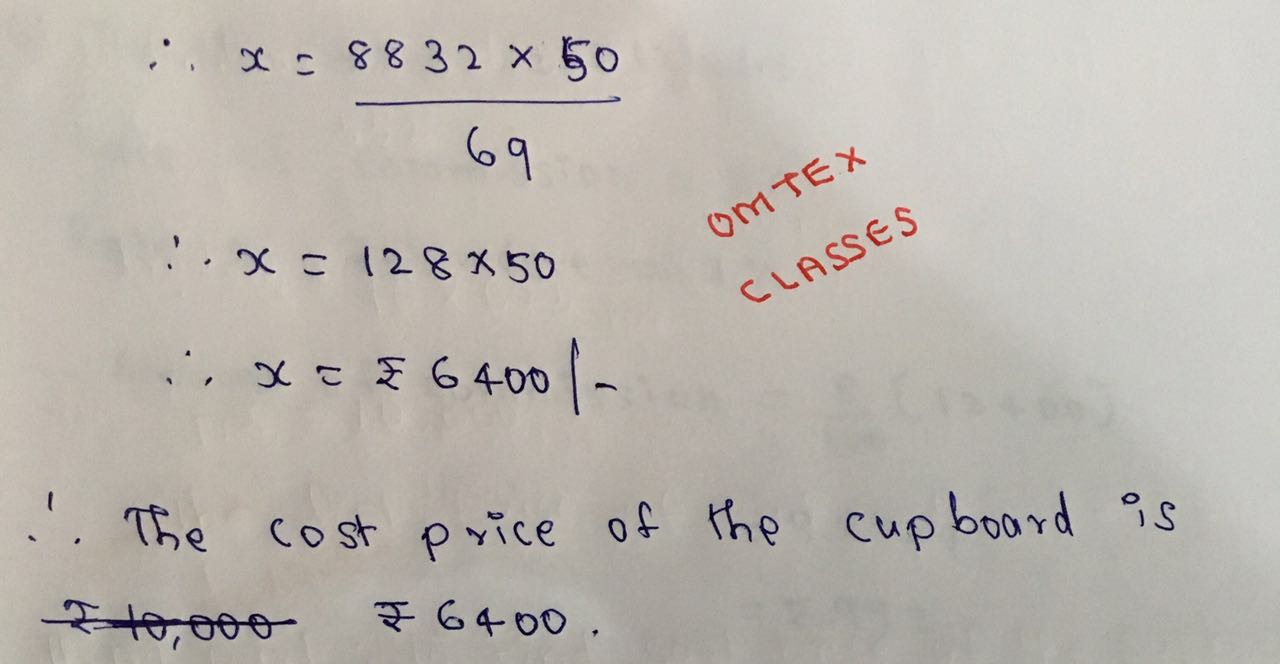 ∴ x = 8832 × 50
69
∴ x = 128 × 50
∴ x = ₹ 6400/-
OMTEX
CLASSES
∴ The cost price of the cupboard is
₹ 10,000 ₹ 6400.